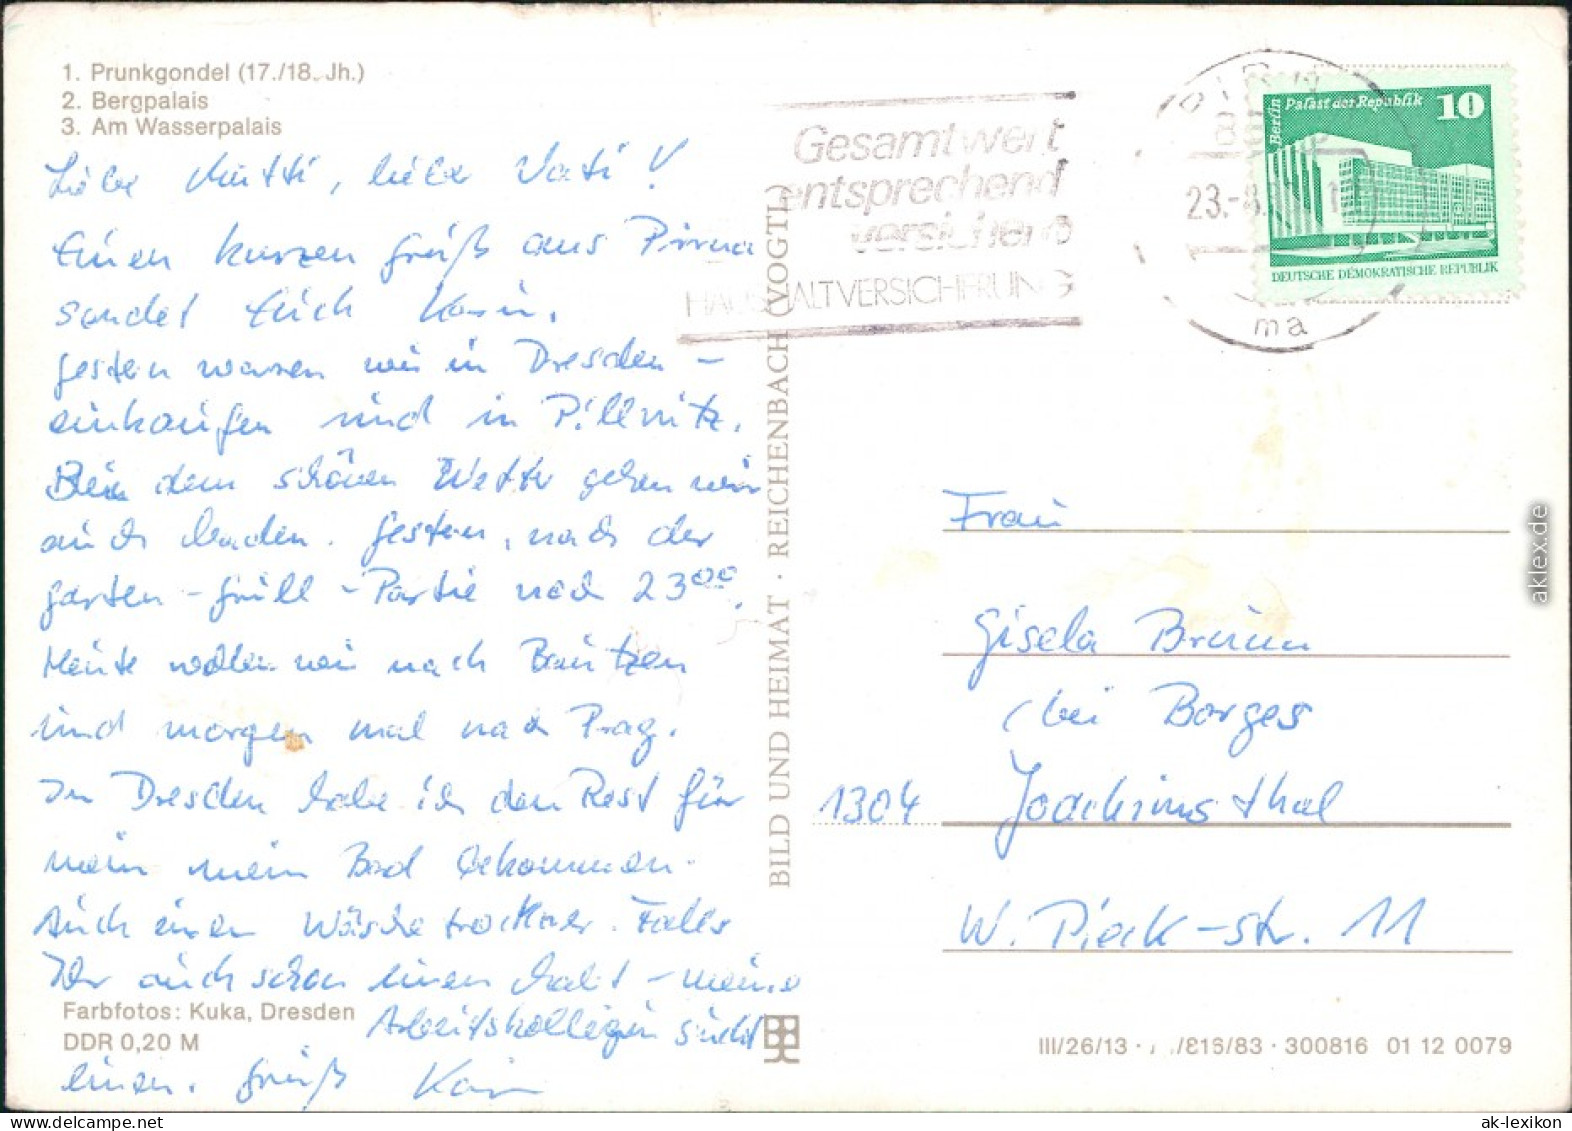 1. Prunkgondel (17./18. Jh.)
2. Bergpalais
3. Am Wasserpalais
Liebe Mutti, lieber Vati!
Einen kurzen Gruß aus Pirna
sendet Euch Karin.
Gestern waren wir in Dresden -
einkaufen und in Pillnitz.
Bei dem schönen Wetter gehen wir
auch baden. Gestern, nach der
Garten-Grill-Partie nach 23⁰⁰.
Heute wollen wir nach Bautzen
und morgen mal nach Prag.
In Dresden habe ich den Rest für
mein Bad bekommen.
Auch einen Wäschetrockner. Falls
Ihr auch schon einen habt - meine
Arbeitskollegin sucht
einen. Gruß Karin
Farbfotos: Kuka, Dresden
DDR 0,20 M
BILD UND HEIMAT · REICHENBACH (VOGTL)
Gesamtwert
entsprechend
versichern
HAUSHALTVERSICHERUNG
23.-8.
Berlin Palast der Republik 10
DEUTSCHE DEMOKRATISCHE REPUBLIK
Frau
Gisela Bruun
bei Borges
1304 Joachimsthal
W. Pieck-Str. 11
III/26/13 · /83 · 300816 01 12 0079
aklex.de
ak-lexikon